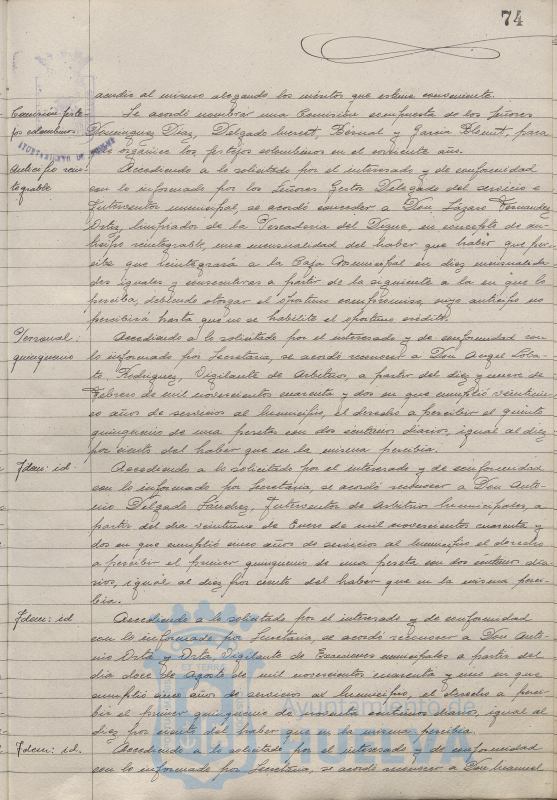 74
acudir al mismo alegando los méritos que estime conveniente.
Comisión feste-
jos colombinos.
Se acordó nombrar una Comisión compuesta de los Señores
Dominguez Diaz, Delgado Bernal y Garcia para
organice los festejos colombinos en el corriente año.
AYUNTAMIENTO DE
Anticipo rein-
tegrable
Accediendo a lo solicitado por el interesado y de conformidad
con lo informado por los Señores Gestor Delegado del servicio e
Interventor municipal, se acordó conceder a Don Lázaro Fernandez
Ortiz, limpiador de la Pescaderia del Dique, en concepto de an-
ticipo reintegrable, una mensualidad del haber que haber que per-
cibe que reintegrará a la Caja Municipal en diez mensualida-
des iguales y consecutivas a partir de la siguiente a la en que lo
perciba, debiendo otorgar el oportuno compromiso, cuyo anticipo no
percibirá hasta que no se habilite el oportuno crédito.
Personal:
quinquenio
Accediendo a lo solicitado por el interesado y de conformidad con
lo informado por Secretaria, se acordó reconocer a Don Angel Loba-
to Rodriguez, Vigilante de Arbitrios, a partir del diez y nueve de
Febrero de mil novecientos cuarenta y dos en que cumplió veinticin-
co años de servicios al Municipio, el derecho a percibir el quinto
quinquenio de una peseta con dos centimos diarios, igual al diez
por ciento del haber que en la misma percibia.
Idem: id.
Accediendo a lo solicitado por el interesado y de conformidad
con lo informado por Secretaria, se acordó reconocer a Don Anto-
nio Delgado Sandez, Interventor de Arbitrios Municipales, a
partir del dia veintiuno de Enero de mil novecientos cuarenta y
dos en que cumplió cinco años de servicios al Municipio el derecho
a percibir el primer quinquenio de una peseta con dos centimos dia-
rios, igual al diez por ciento del haber que en la misma perci-
bia.
Idem: id.
Accediendo a lo solicitado por el interesado y de conformidad
con lo informado por Secretaria, se acordó reconocer a Don Anto-
nio Orta y Orta, Vigilante de Exacciones municipales a partir del
dia doce de Agosto de mil novecientos cuarenta y uno en que
cumplió cinco años de servicios al Municipio, el derecho a perci-
bir el primer quinquenio de noventa centimos diarios, igual al
diez por ciento del haber que en la misma percibia.
Idem: id.
Accediendo a lo solicitado por el interesado y de conformidad
con lo informado por Secretaria, se acordó reconocer a Don Manuel
Ayuntamiento de
HUELVA